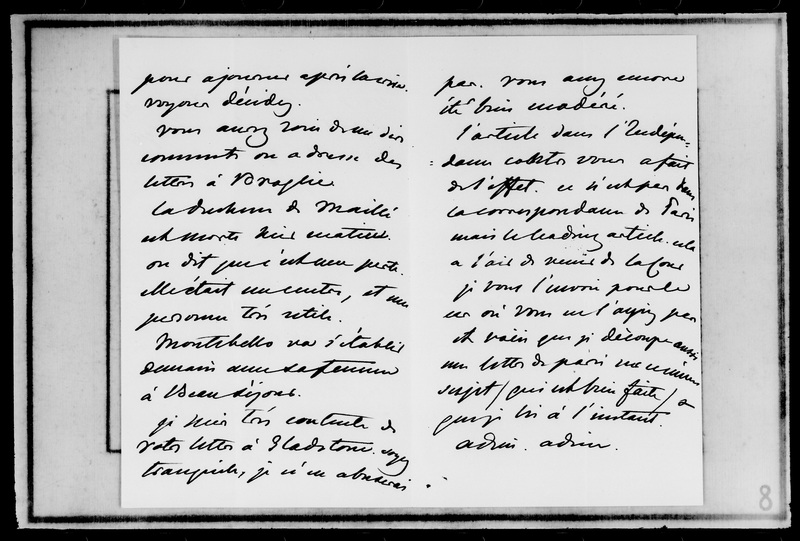 pour ajourner après la crise.
voyons décidez.
vous aurez soin de me dire
comment on adresse des
lettres à Broglie
la duchesse de Maillé
est morte hier matin.
on dit que c'est une perte.
elle était un centre, et une
personne très utile.
Montebello va s'établir
demain avec sa femme
à Beauséjour.
je suis très contente de
votre lettre à Gladstone. soyez
tranquille, je n'en abuserai
pas. vous avez encore
été bien modéré.
l'article dans l'Indépen-
-dance contre vous a fait
de l'effet. ce n'est pas dans
la correspondance de Paris
mais le leading article. cela
a l'air de venir de la Cour
je vous l'envoie pour le
cas où vous ne l'ayiez pas
et voici que je découpe aussi
une lettre de paris
sujet / qui est bien faite / &
que je lis à l'instant.
adieu. adieu.
8